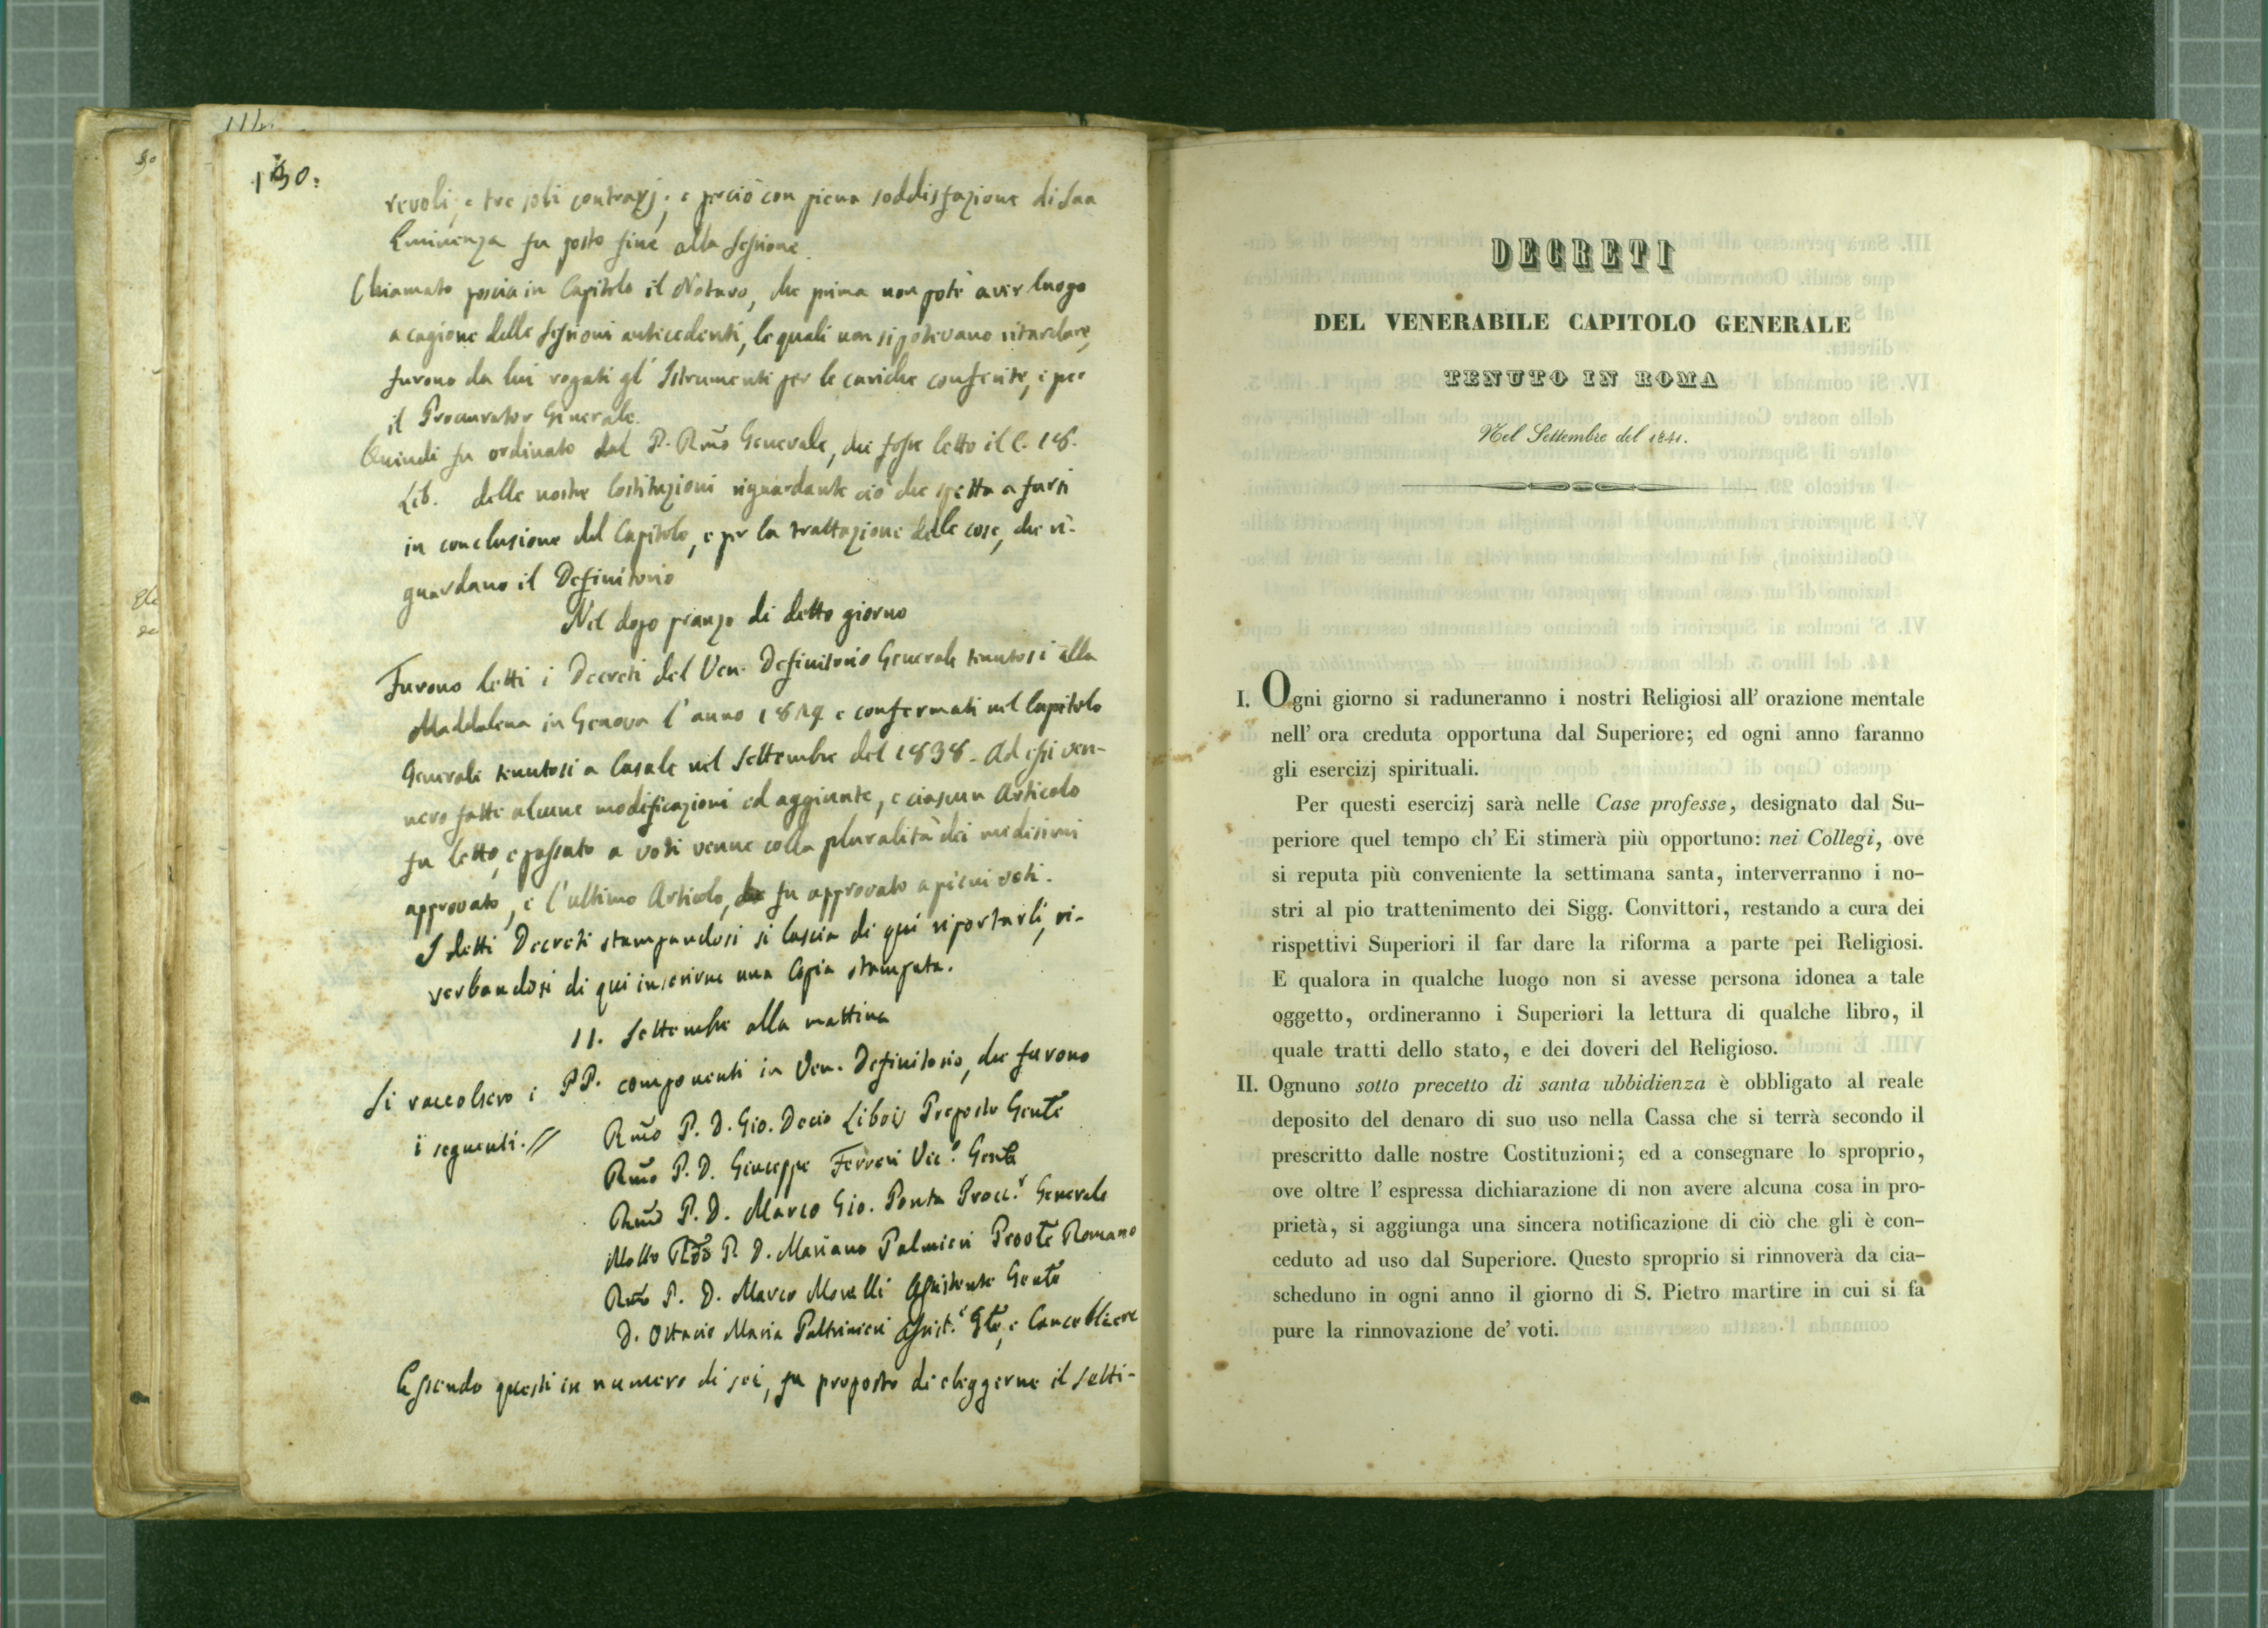 130.
revoli, e tre soli contrarj; e perciò con piena soddisfazione di Sua
Eminenza fu posto fine alla Sessione.
Chiamato poscia in Capitolo il Notaro, che prima non potè aver luogo
a cagione delle Sessioni antecedenti, le quali non si potevano ritardare,
furono da lui rogati gl' Istrumenti per le cariche conferite, e per
il Procurator Generale.
Quindi fu ordinato dal P. Rmo Generale, che fosse letto il C. 18.
Lib. delle nostre Costituzioni riguardante ciò che spetta a farsi
in conclusione del Capitolo, e per la trattazione delle cose, che ri-
guardano il Definitorio
Nel dopo pranzo di detto giorno
Furono letti i Decreti del Ven. Definitorio Generale tenutosi alla
Maddalena in Genova l'anno e confermati nel Capitolo
Generale tenutosi a Casale nel Settembre del 1838. Ad essi ven-
nero fatte alcune modificazioni ed aggiunte, e ciascun Articolo
fu letto, e passato a voti venne colla pluralità dei medesimi
approvato, e l'ultimo Articolo, fu approvato a pieni voti.
I detti Decreti stampandosi si lascia di qui riportarli, ri-
serbandosi di qui inserirne una Copia stampata.
11. Settembre alla mattina
Si raccolsero i PP. componenti in Ven. Definitorio, che furono
i seguenti. // Rmo P. D. Gio. Decio Libois Preposto Gente
Rmo P. D. Giuseppe Ferreri Vic.o Genle
Rmo P. D. Marco Gio. Ponta Procc.r Generale
Molto Rdo P. D. Mariano Palmieri Proote Romano
Rmo P. D. Marco Morelli Assistente Genle
D. Ottavio Maria Paltrinieri Assist.e Gle, e Cancelliere
Essendo questi in numero di sei, fu proposto di eleggerne il setti-
DECRETI
DEL VENERABILE CAPITOLO GENERALE
TENUTO IN ROMA
Nel Settembre del 1841.
I. Ogni giorno si raduneranno i nostri Religiosi all' orazione mentale
nell' ora creduta opportuna dal Superiore; ed ogni anno faranno
gli esercizj spirituali.
Per questi esercizj sarà nelle Case professe, designato dal Su-
periore quel tempo ch' Ei stimerà più opportuno: nei Collegi, ove
si reputa più conveniente la settimana santa, interverranno i no-
stri al pio trattenimento dei Sigg. Convittori, restando a cura dei
rispettivi Superiori il far dare la riforma a parte pei Religiosi.
E qualora in qualche luogo non si avesse persona idonea a tale
oggetto, ordineranno i Superiori la lettura di qualche libro, il
quale tratti dello stato, e dei doveri del Religioso.
II. Ognuno sotto precetto di santa ubbidienza è obbligato al reale
deposito del denaro di suo uso nella Cassa che si terrà secondo il
prescritto dalle nostre Costituzioni; ed a consegnare lo sproprio,
ove oltre l' espressa dichiarazione di non avere alcuna cosa in pro-
prietà, si aggiunga una sincera notificazione di ciò che gli è con-
ceduto ad uso dal Superiore. Questo sproprio si rinnoverà da cia-
scheduno in ogni anno il giorno di S. Pietro martire in cui si fa
pure la rinnovazione de' voti.